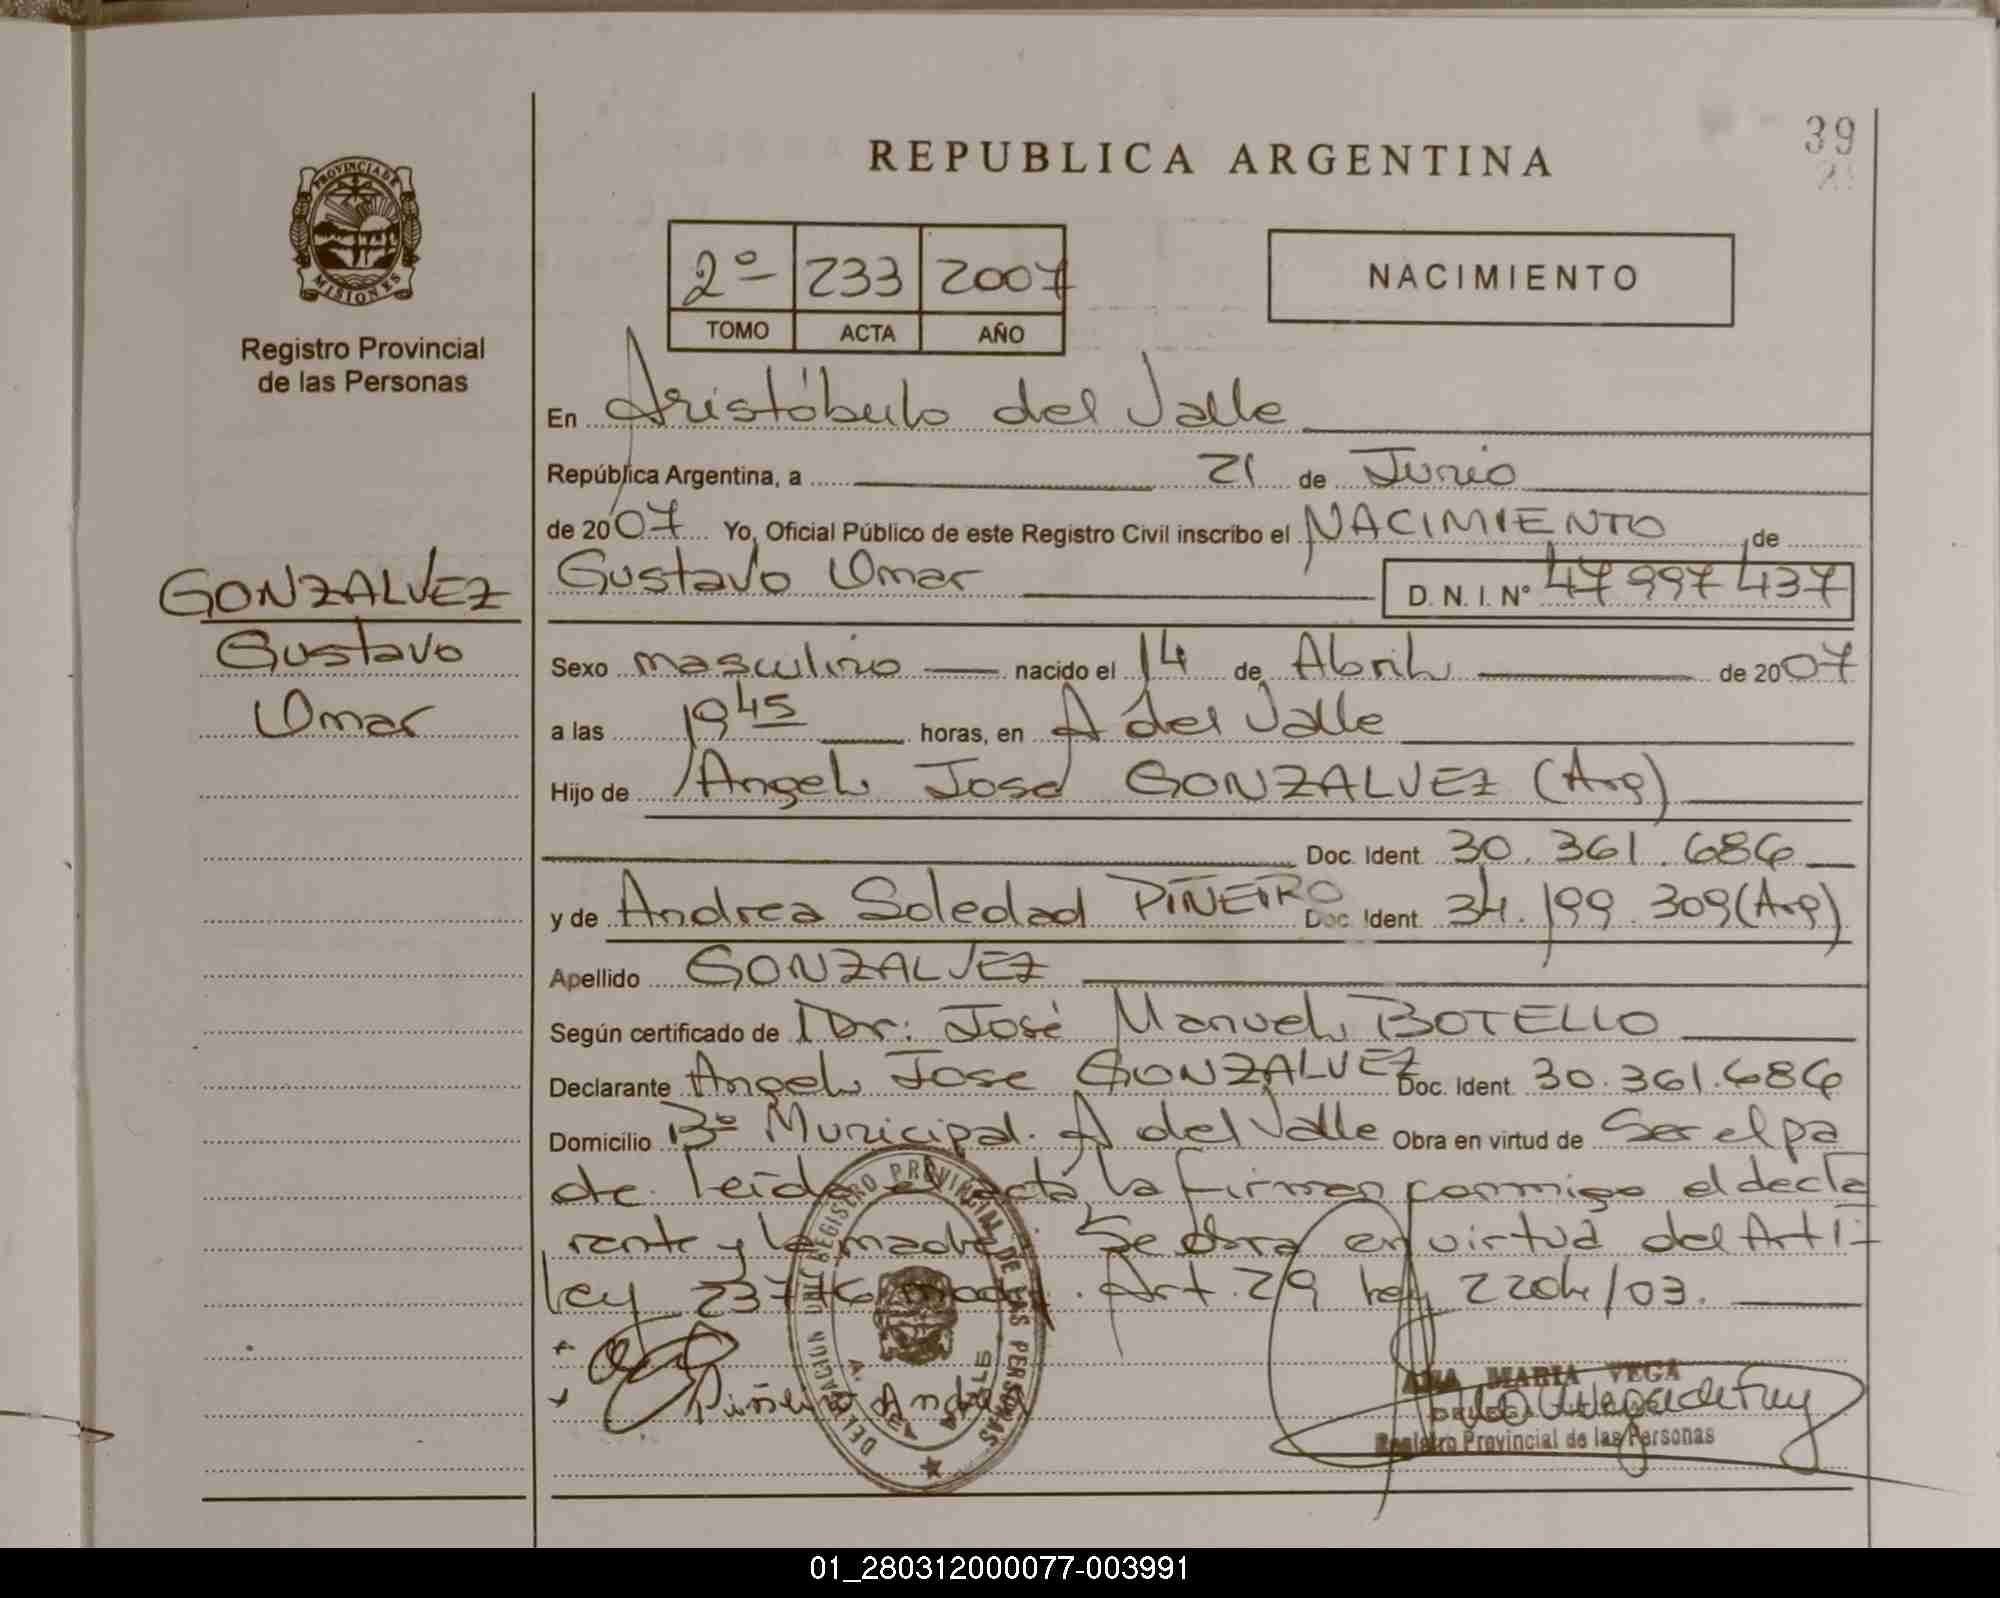 39
REPUBLICA ARGENTINA
PROVINCIA DE
MISIONES
Registro Provincial
de las Personas
2º 233 2007
TOMO ACTA AÑO
NACIMIENTO
En Aristóbulo del Valle
República Argentina, a 21 de Junio
de 2007 Yo, Oficial Público de este Registro Civil inscribo el NACIMIENTO de
GONZALVEZ
Gustavo
Omar
Gustavo Omar D.N.I.Nº 47 997 437
Sexo masculino nacido el 14 de Abril de 2007
a las 19 45 horas, en A del Valle
Hijo de Angel Jose GONZALVEZ (Arg)
Doc. Ident. 30.361.686
y de Andrea Soledad PIÑEIRO Doc. Ident. 34.199.309 (Arg)
Apellido GONZALVEZ
Según certificado de Dr: José Manuel BOTELLO
Declarante Angel Jose GONZALVEZ Doc. Ident. 30.361.686
Domicilio Bº Municipal. A del Valle Obra en virtud de Ser el pa
dre. leída el acta la firman conmigo el decla
rante y la madre. Se obra en virtud del Art 1-
ley 23776 modf. Art. 29 ley 2204/03.
Piñeiro Andrea
DELEGACION REGISTRO PROVINCIAL DE LAS PERSONAS
A. DEL VALLE
ANA MARIA VEGA
Registro Provincial de las Personas
01_280312000077-003991